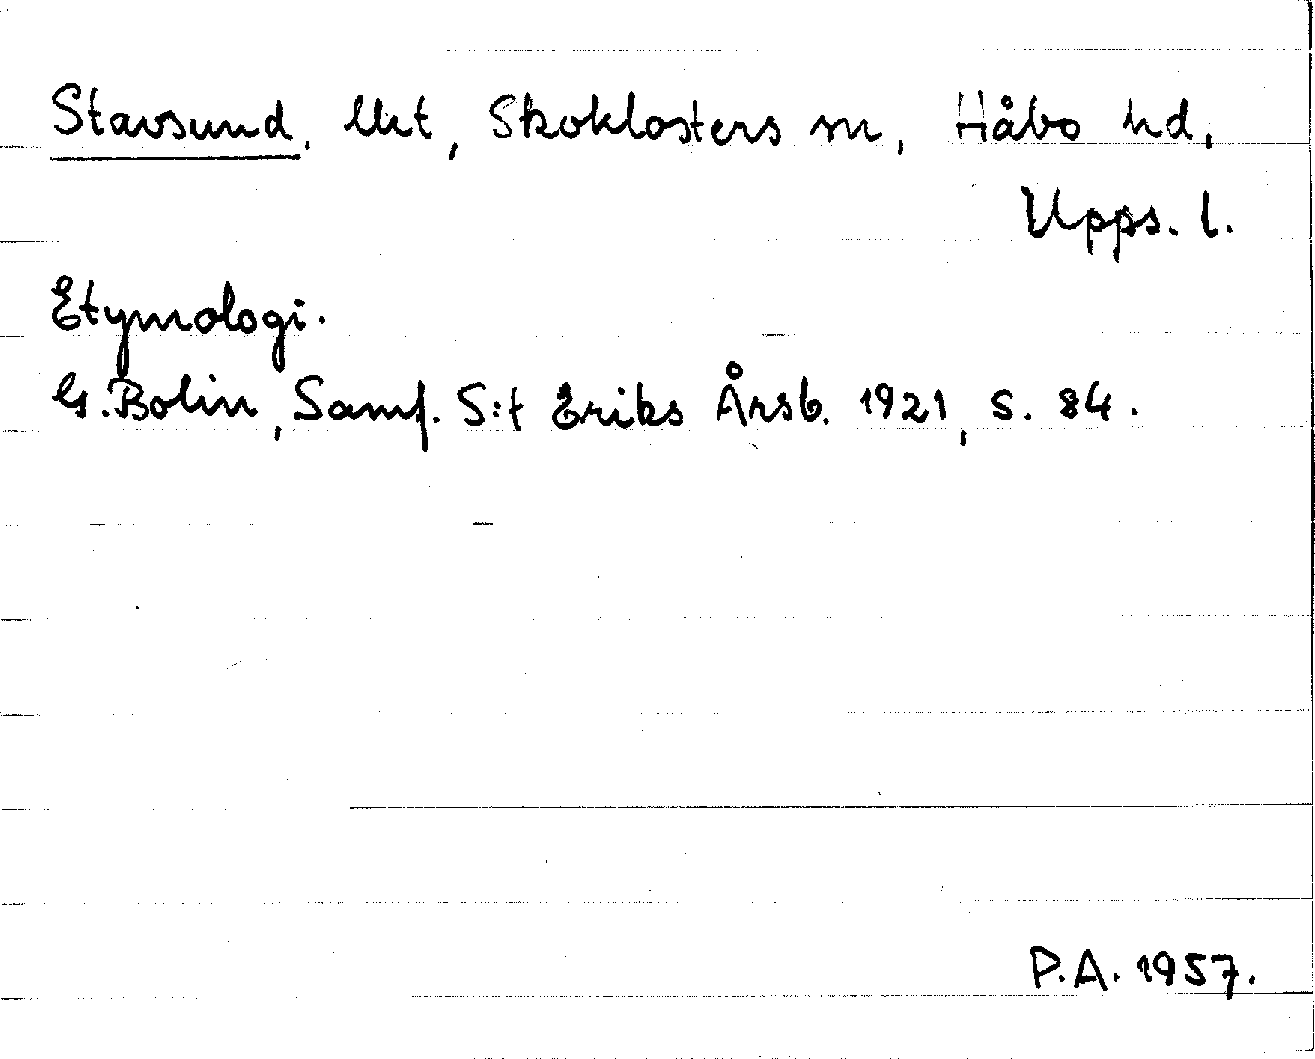 Stavsund, lht, Skoklosters sn, Håbo hd,
Upps. l.
Etymologi.
G. Bolin, Samf. S:t Eriks Årsb. 1921, s. 84.
P.A. 1957.